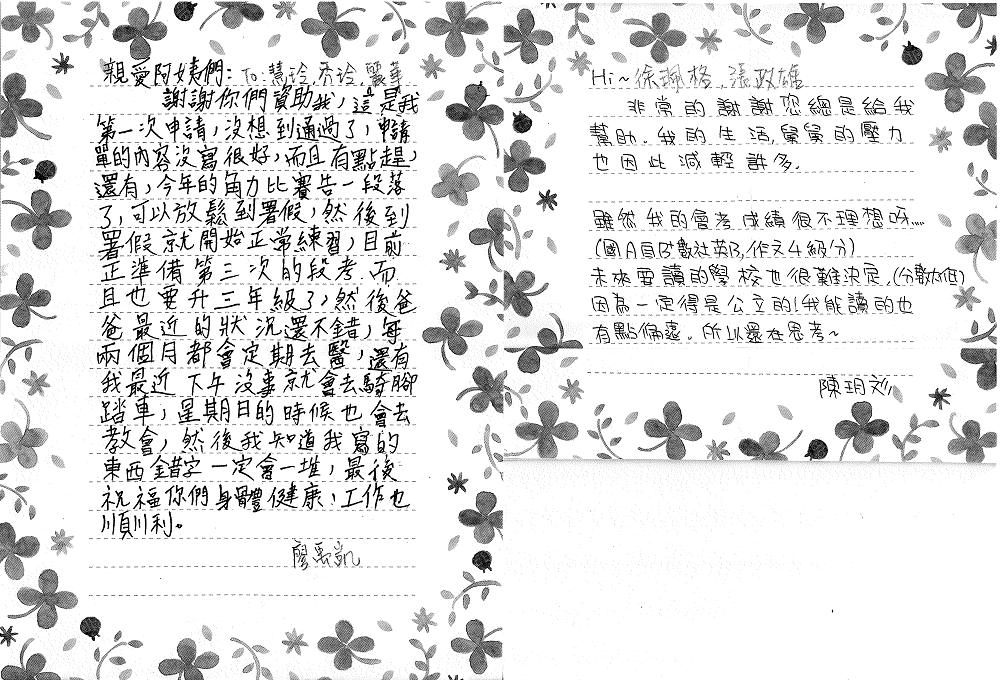 親愛阿姨們：To:慧玲,乔玲,麗華
謝謝你們資助我，這是我
第一次申請，沒想到通過了，申請
單的內容沒寫很好，而且有點趕，
還有，今年的角力比賽告一段落
了，可以放鬆到署假，然後到
署假就開始正常練習，目前
正準備第三次的段考，而
且也要升三年級了，然後爸
爸最近的狀況還不錯，每
兩個月都會定期去醫，還有
我最近下午沒事就會去騎腳
踏車，星期日的時候也會去
教會，然後我知道我寫的
東西錯字一定會一堆，最後
祝福你們身體健康、工作也
順利。
廖禹凱
Hi~徐珮格,張政雄
非常的謝謝您總是給我
幫助。我的生活,舅舅的壓力
也因此減輕許多.
雖然我的會考成績很不理想呀……
(國A 自B 數社英B,作文4級分)
未來要讀的學校也很難決定,(分數太低)
因為一定得是公立的!我能讀的也
有點偏遠。所以還在思考~
陳玥